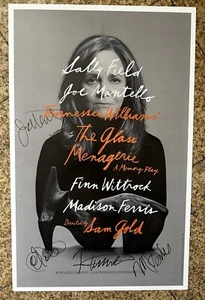 Sally Field
Joe Mantello
Tennessee Williams'
The Glass
Menagerie
A Memory Play
Finn Wittrock
Madison Ferris
Directed by
Sam Gold